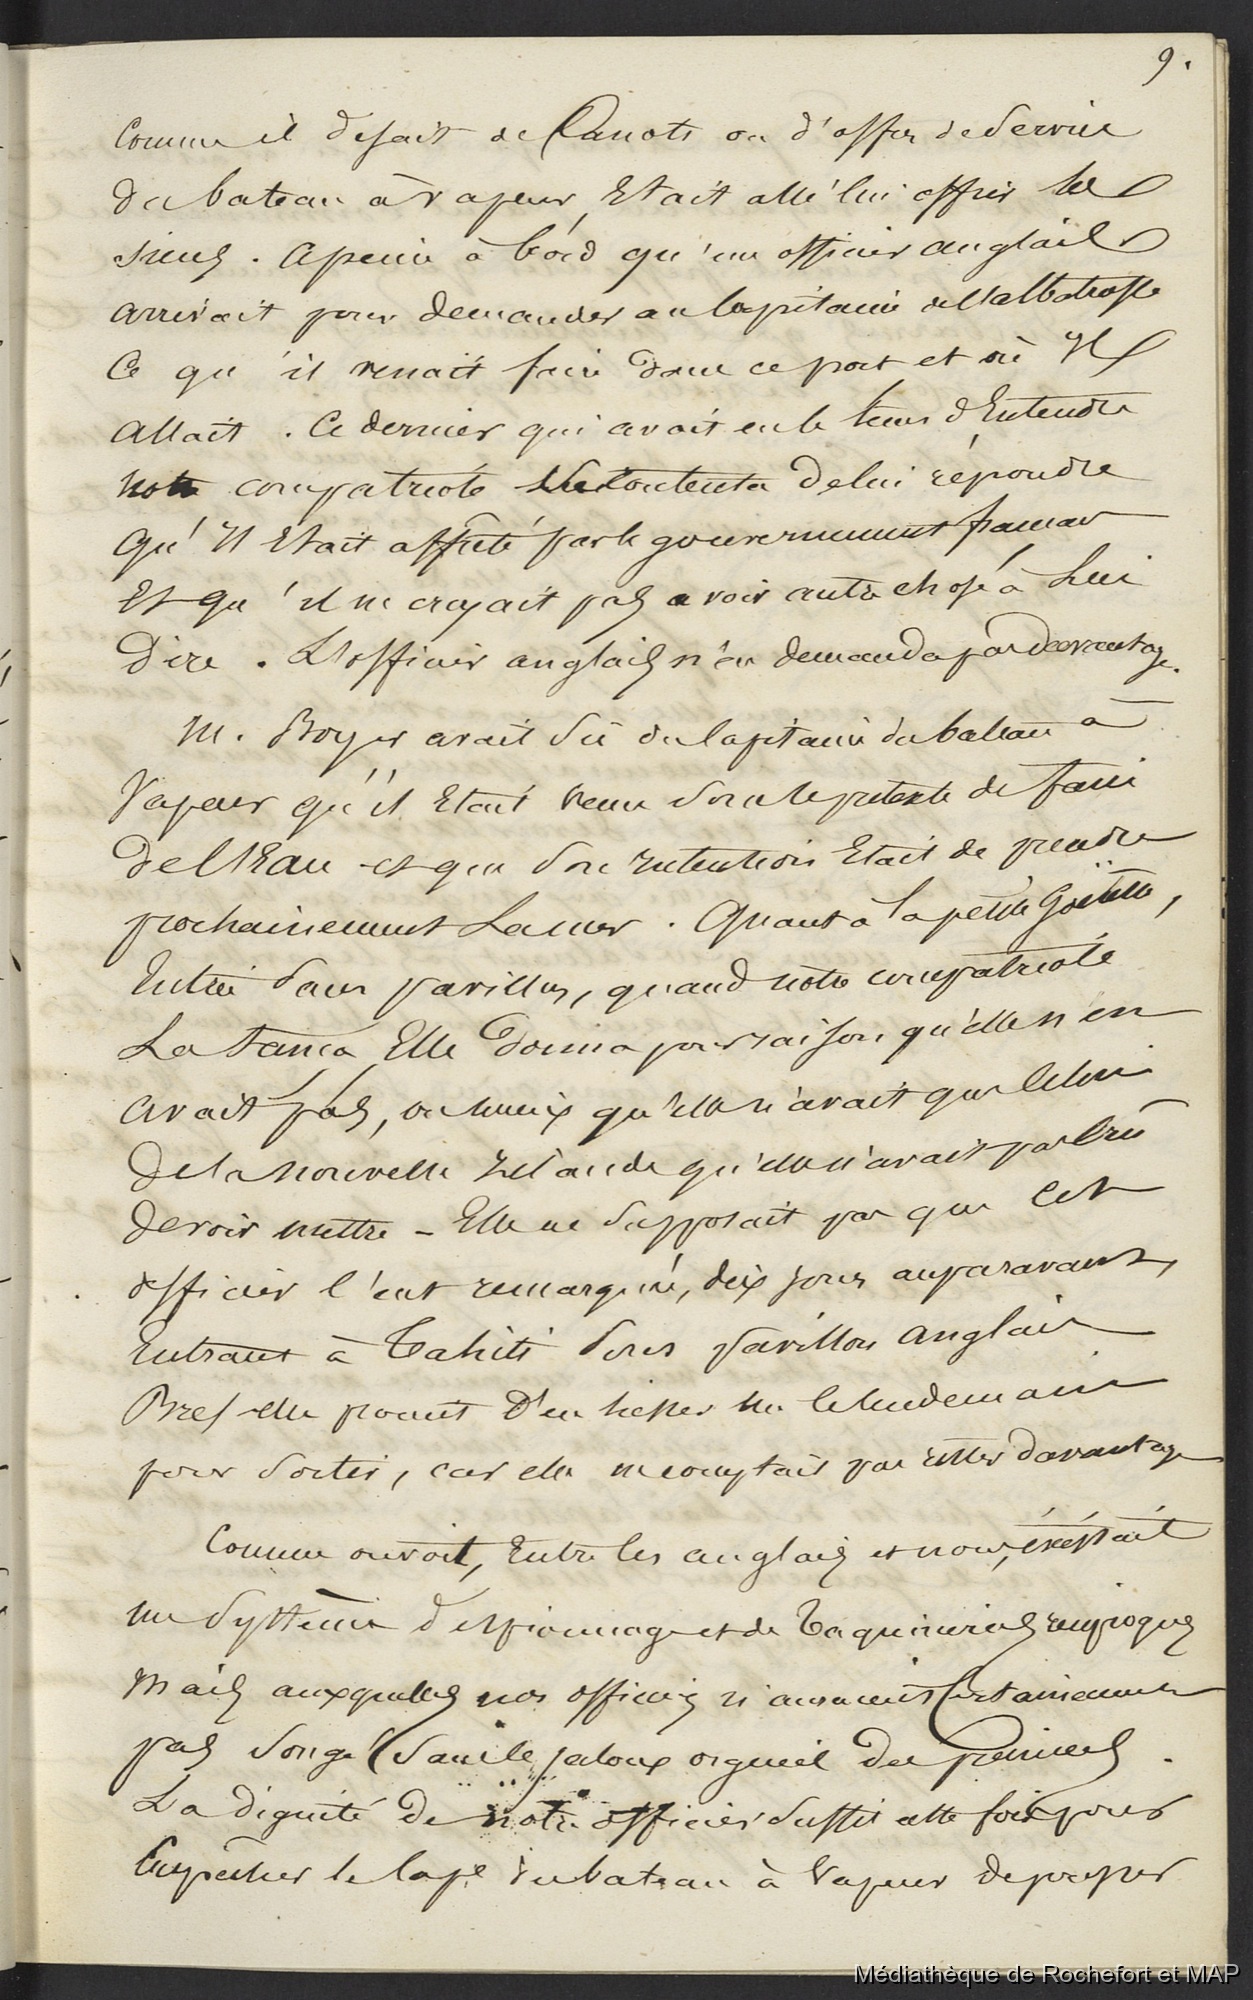 9.
Comme il usait de Canots ou d'offre de service
du bateau à vapeur, Etait allé lui offrir les
siens. A peine à bord qu'un officier anglais
arrivait pour demander au Capitaine de l'albatross
Ce qu'il venait faire dans ce port et où Il
allait. Ce dernier qui avait eu le tems d'Entendre
notre compatriote se contenta de lui répondre
qu'Il Etait affrété par le gouvernement français
Et qu'il ne croyait pas avoir autre chose à Lui
Dire. L'officier anglais n'en demanda pas davantage.
M. Boyer avait su du Capitaine du bateau à
Vapeur qu'il Etait venu sous le prétexte de faire
De l'Eau et que son Intention Etait de prendre
prochainement La mer. Quant à la petite Goëlette,
Entrée sans pavillon, quand notre compatriote
La tança Elle donna pour raison qu'elle n'en
avait pas, ou mieux qu'elle n'avait que celui
De la nouvelle Zélande qu'elle n'avait pas crû
devoir mettre - Elle ne supposait pas que cet
officier l'eut remarquée, dix jours auparavant,
Entrant à Tahiti sous pavillon anglais
Bref elle promit d'en hisser un le lendemain
pour sortir, car elle ne comptait pas rester davantage
Comme on voit, Entre les anglais et nous, éxistait
un Système d'espionnage et de Taquineries réciproques
Mais auxquelles nos officiers n'auraient Certainement
pas songé sans le jaloux orgueil des premiers.
La dignité de notre officier suffit cette fois pour
Empêcher le Cap.e du bateau à Vapeur de passer
Médiathèque de Rochefort et MAP